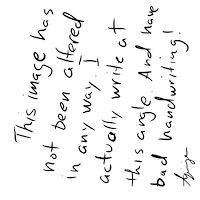 This image has
not been altered
in any way. I
actually write at
this angle. And have
bad handwriting!